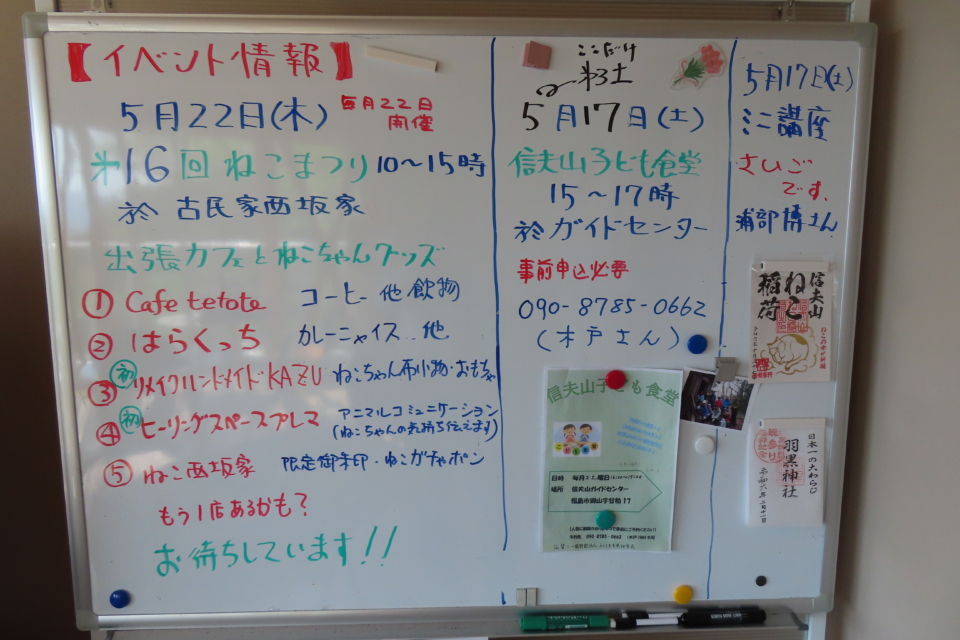 【イベント情報】
5月22日(木)
毎月22日
開催
第16回 ねこまつり 10〜15時
於 古民家西坂家
出張カフェとねこちゃんグッズ
① Cafe tetote コーヒー 他 飲物
② はらくっち カレーニャイス 他
初
③ リメイクハンドメイドKAZU ねこちゃん布小物・おもちゃ
初
④ ヒーリングスペースプレマ アニマルコミュニケーション
(ねこちゃんの気持ち伝えます)
⑤ ねこ西坂家 限定御朱印・ねこガチャポン
もう1店あるかも?
お待ちしています!!
ここだけ
第3土
5月17日(土)
信夫山子ども食堂
15〜17時
於 ガイドセンター
事前申込必要
090-8785-0662
(木戸さん)
信夫山子ども食堂
日時
場所 信夫山ガイドセンター
5月17日(土)
ミニ講座
さいご
です。
浦部博さん
信夫山
ねこ
稲荷
日本一の大わらじ
羽黒神社